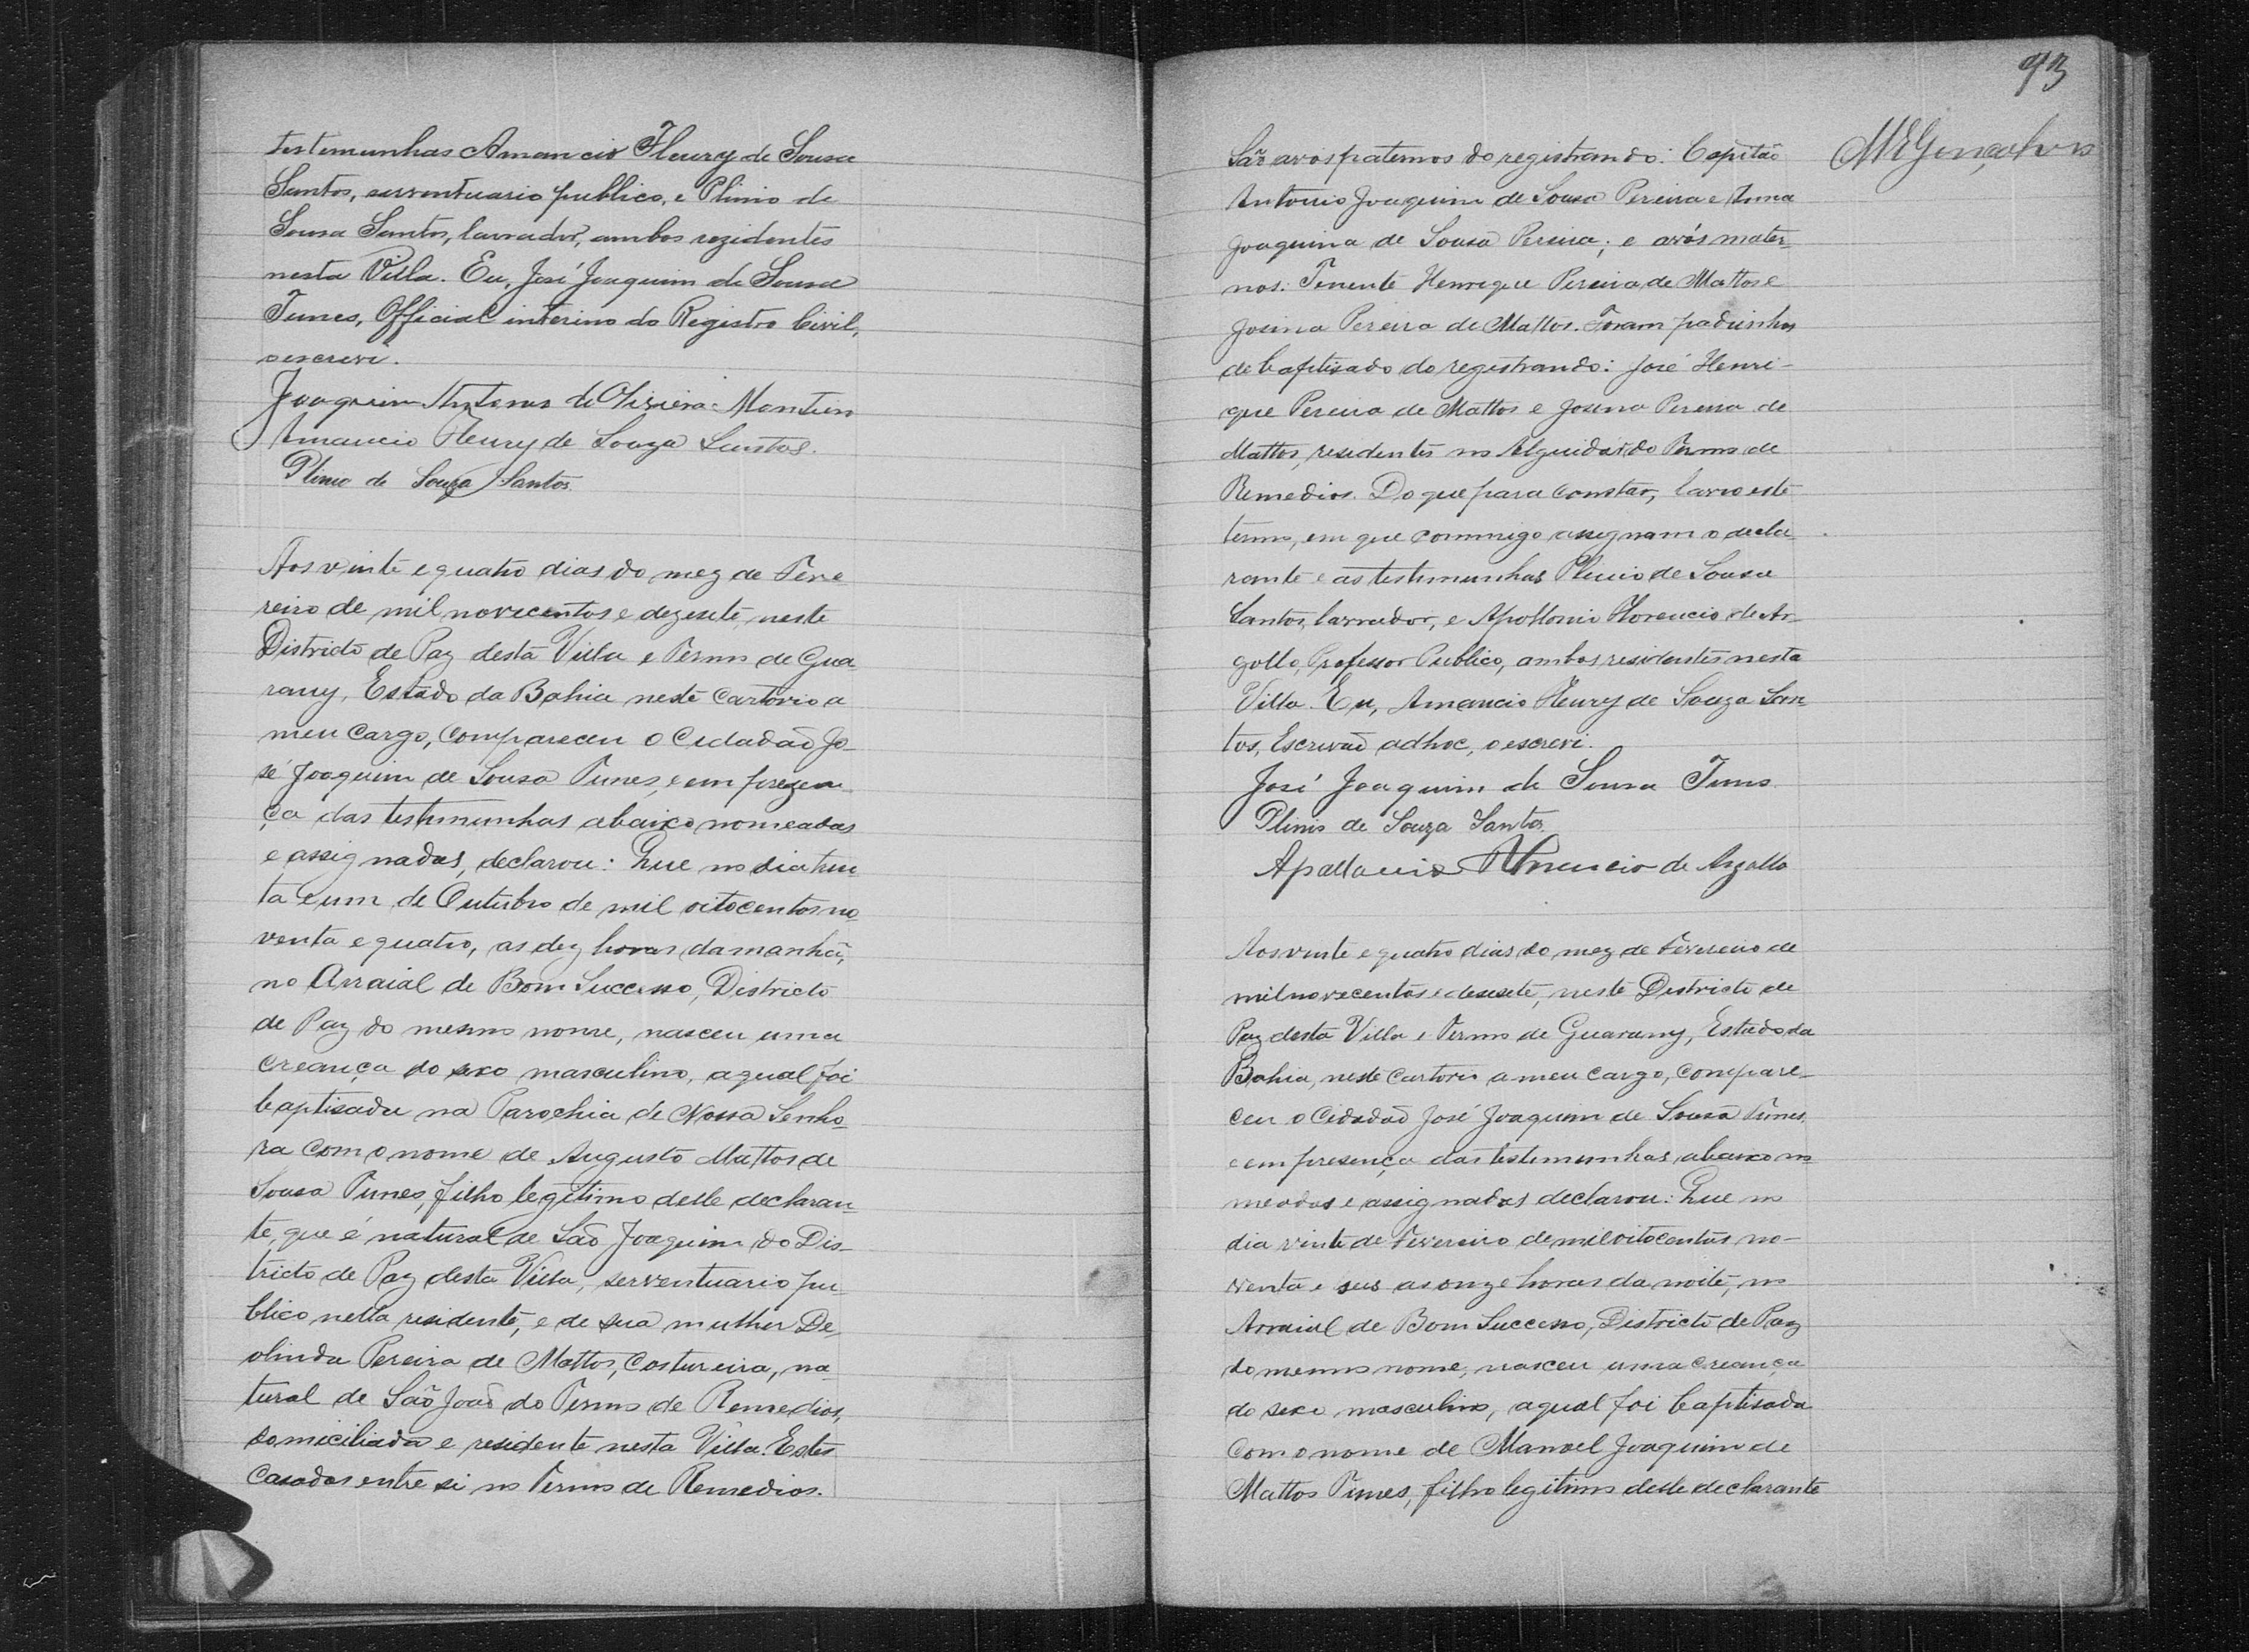 testemunhas Amancio Fleury de Sousa
Santos, serventuario publico, e Plinio de
Sousa Santos, lavrador, ambos rezidentes
nesta Villa. Eu, José Joaquim de Sousa
Tunes, Official interino do Registro Civil,
o escrevi.
Joaquim Antonio de Oliveira Monteiro
Amancio Fleury de Souza Santos.
Plinio de Souza Santos.
Aos vinte e quatro dias do mez de Feve
reiro de mil novecentos e dezesete, neste
Districto de Paz desta Villa e Termo de Gua
rany, Estado da Bahia neste Cartorio a
meu Cargo, compareceu o Cidadaõ Jo_
sé Joaquim de Sousa Tunes, e em prezen_
ça das testimunhas abaixo nomeadas
e assignadas, declarou: Que no dia trin_
ta e um de Outubro de mil oitocentos no_
venta e quatro, as dez horas da manhã,
no Arraial de Bom Successo, Districto
de Paz do mesmo nome, nasceu uma
creança do sexo masculino, a qual foi
baptisada na Parochia de Nossa Senho_
ra com o nome de Augusto Mattos de
Sousa Tunes, filho legitimo delle declaran_
te, que é natural de Saõ Joaquim do Dis_
tricto de Paz desta Villa, serventuario pu_
blico nella residente, e de sua mulher De
olinda Pereira de Mattos, Costureira, na_
tural de Saõ Joaõ do Termo de Remedios,
domiciliada e residente nesta Villa. Estes
Casados entre si no Termo de Remedios.
93
MEGonçalves
Saõ avós paternos do registrando: Capitaõ
Antonio Joaquim de Sousa Pereira e Anna
Joaquina de Sousa Pereira; e avós mater_
nos: Tenente Henrique Pereira de Mattos e
Josina Pereira de Mattos. Foram padrinhos
de baptisado do registrando: José Henri-
que Pereira de Mattos e Josina Pereira de
Mattos, residentes no Alguidar do Termo de
Remedios. Do que para constar, lavro este
termo, em que commigo assignam o decla_
rante e as testimunhas Plinio de Sousa
Santos, lavrador, e Apollonio Florencio de Ar_
gollo, Professor Publico, ambos residentes nesta
Villa. Eu, Amancio Fleury de Souza San_
tos, Escrivaõ adhoc, o escrevi.
José Joaquim de Sousa Tunes
Plinio de Souza Santos.
Apollonio Florencio de Argollo
Aos vinte e quatro dias do mez de Fevereiro de
mil novecentos e desesete, neste Districto de
Paz desta Villa e Termo de Guarany, Estado da
Bahia, neste Cartorio a meu cargo, compare_
ceu o Cidadaõ José Joaquim de Sousa Tunes,
e em presença das testimunhas abaixo no_
meadas e assignadas declarou: Que no
dia vinte de Fevereiro de mil oitocentos no-
venta e seis as onze horas da noite, no
Arraial de Bom Successo, Districto de Paz
do mesmo nome, nasceu uma creança
do sexo masculino, a qual foi baptisada
com o nome de Manoel Joaquim de
Mattos Tunes, filho legitimo delle declarante